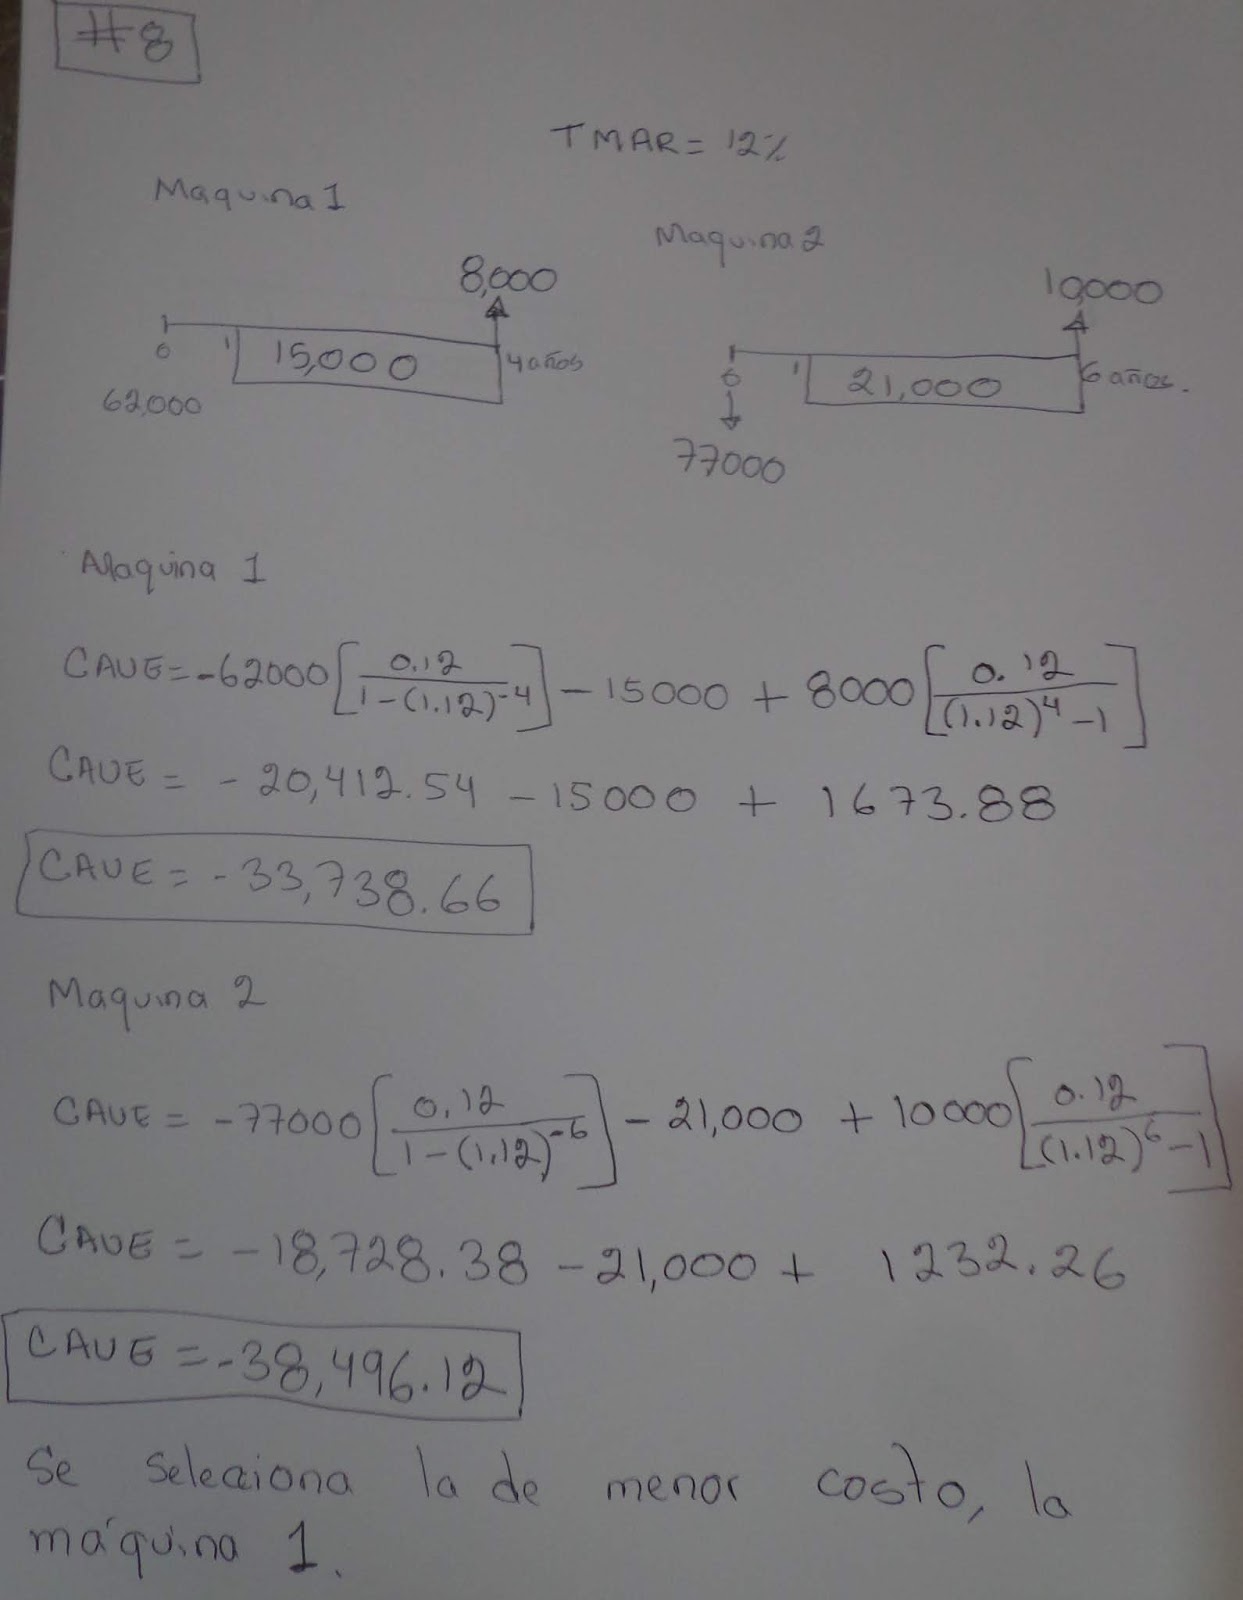 #8
TMAR = 12%
Maquina 1
Maquina 2
8,000
10,000
0 1 15,000 4 años
0 1 21,000 6 años.
62,000
77000
Maquina 1
CAUE = -62000 [0.12 / 1-(1.12)^-4] - 15000 + 8000 [0.12 / (1.12)^4 - 1]
CAUE = - 20,412.54 - 15000 + 1673.88
CAUE = - 33,738.66
Maquina 2
CAUE = -77000 [0.12 / 1-(1.12)^-6] - 21,000 + 10000 [0.12 / (1.12)^6 - 1]
CAUE = -18,728.38 - 21,000 + 1232.26
CAUE = -38,496.12
Se selecciona la de menor costo, la
máquina 1.